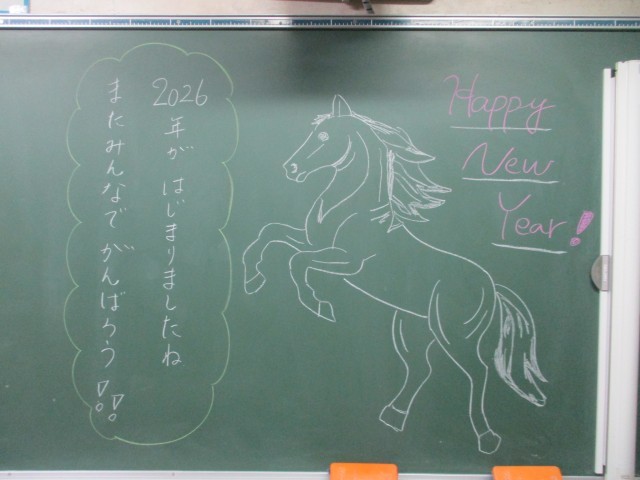 2026年が はじまりましたね
またみんなで がんばろう!!
Happy
New
Year!